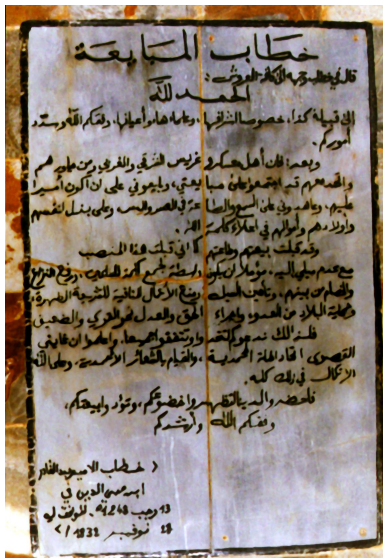 خطاب المبايعة
الحمد لله
إلى قبيلة كذا، خصوصا أشرافها، وعلماءها وأعيانها، وفقكم الله وسدد
أموركم.
وبعد: فإن أهل معسكر وغريس الشرقي والغربي ومن جاورهم
واتحد معهم قد اجتمعوا على مبايعتي، وبايعوني على أن أكون أميرا
عليهم، وعاهدوني على السمع والطاعة في العسر واليسر، وعلى بذل أنفسهم
وأولادهم وأموالهم في إعلاء كلمة الله.
وقد قبلت بيعتهم وطاعتهم كما أني قبلت هذا المنصب
مع عدم ميلي إليه، مؤملا أن يكون واسطة لجمع كلمة المسلمين، ورفع النزاع
والخصام من بينهم، وتأمين السبل ومنع الأعمال المنافية للشريعة المطهرة،
وحماية البلاد من العدو، وإجراء الحق والعدل نحو القوي والضعيف
فلذلك ندعوكم لتتحدوا وتتفقوا جميعا، واعلموا أن غايتي
القصوى اتحاد الملة المحمدية، والقيام بالشعائر الأحمدية، وعلى الله
الاتكال في ذلك كله.
فاحضروا لدينا لتظهروا خضوعكم، وتؤدوا بيعتكم،
وفقكم الله وأرشدكم
خطاب الأمير عبد القادر
ابن محي الدين في
13 رجب 1248 هـ. الموافق لـ
27 نوفمبر 1832